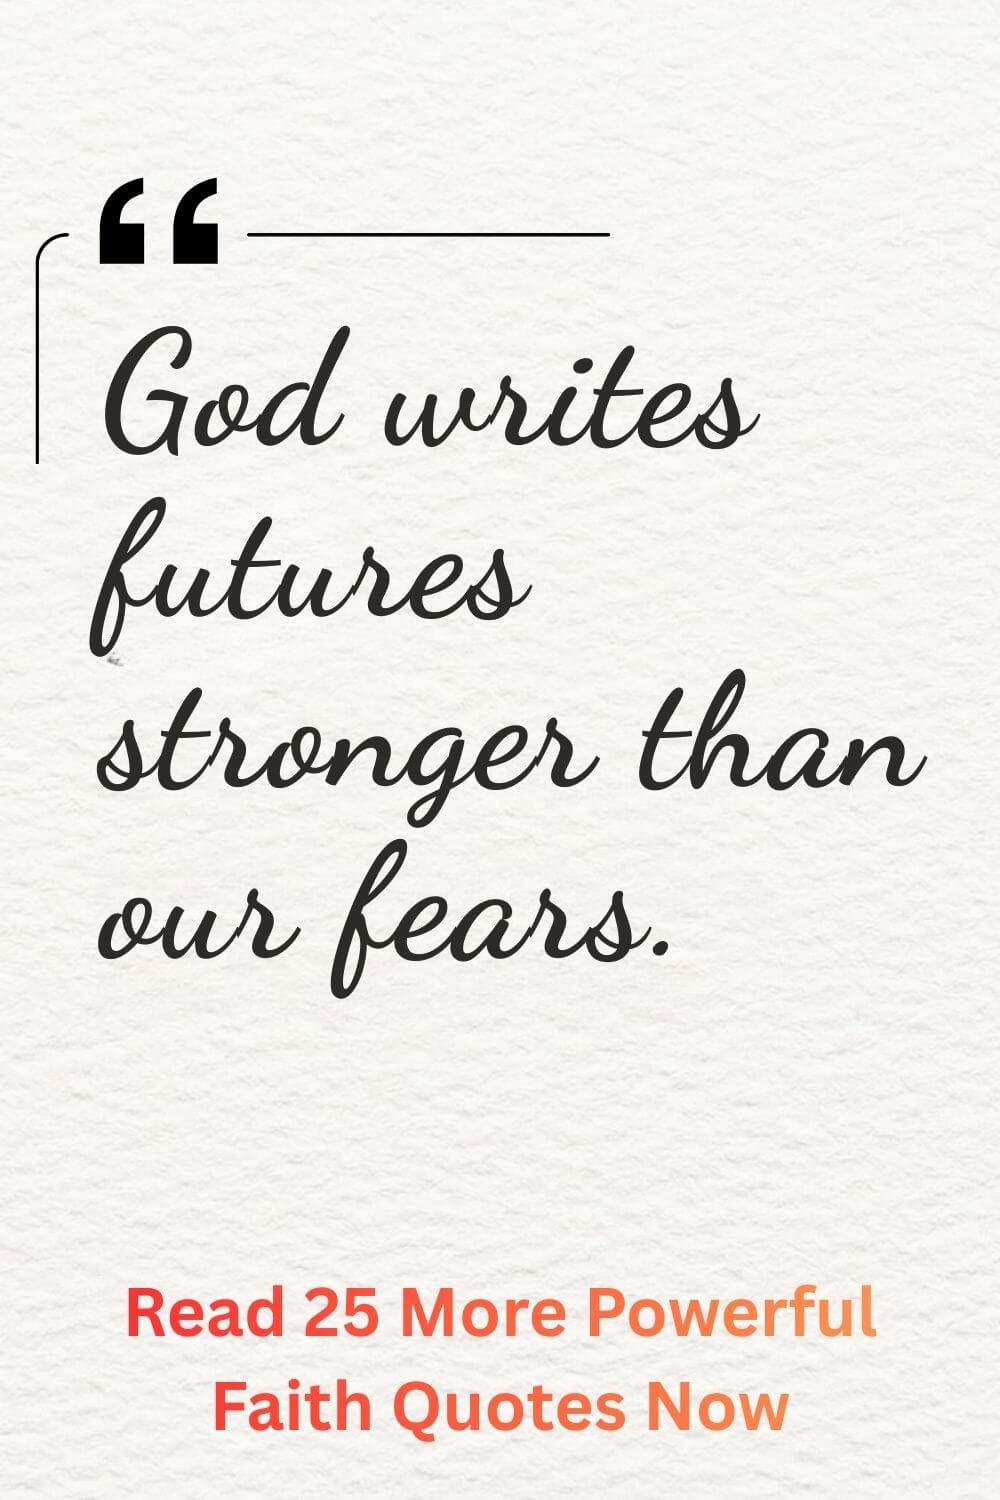 “
God writes
futures
stronger than
our fears.
Read 25 More Powerful
Faith Quotes Now